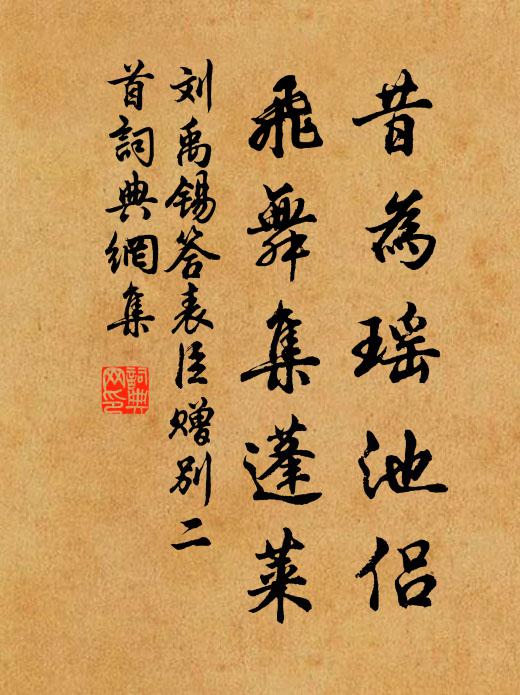 昔為瑶池侣
飛舞集蓬萊
刘禹锡答表臣赠别二
首詞典網集
詞典
网印